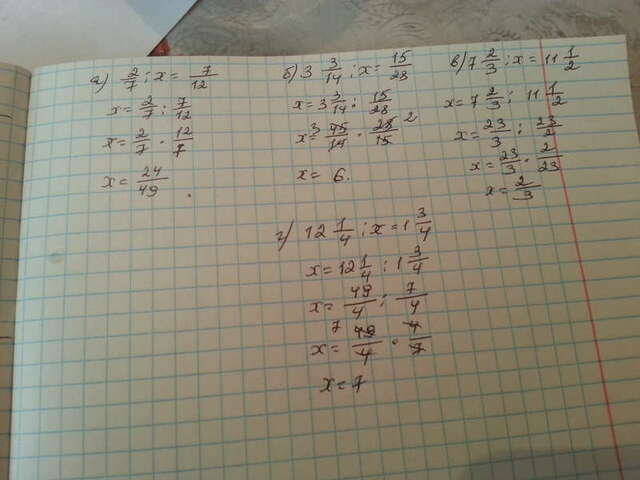 а) 2/7 : x = 7/12
x = 2/7 : 7/12
x = 2/7 · 12/7
x = 24/49.
б) 3 3/14 : x = 15/28
x = 3 3/14 : 15/28
x = 3 45/14 · 28/15 2
x = 6.
в) 7 2/3 : x = 11 1/2
x = 7 2/3 : 11 1/2
x = 23/3 : 23/2
x = 23/3 · 2/23
x = 2/3
г) 12 1/4 : x = 1 3/4
x = 12 1/4 : 1 3/4
x = 49/4 : 7/4
x = 7 49/4 · 4/7
x = 7